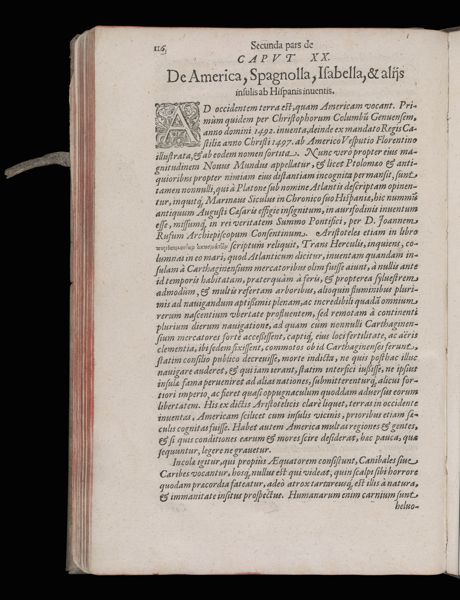 116. Secunda pars de
CAPVT XX.
De America, Spagnolla, Isabella, & alijs
insulis ab Hispanis inuentis.
AD occidentem terra est, quam Americam vocant. Pri-
mùm quidem per Christophorum Columbũ Genuensem,
anno domini 1492. inuenta, deinde ex mandato Regis Ca-
stiliæ anno Christi 1497. ab Americo Vesputio Florentino
illustrata, & ab eodem nomen sortita. Nunc verò propter eius ma-
gnitudinem Nouus Mundus appellatur, & licet Ptolomeo & anti-
quioribus propter nimiam eius distantiam incognita permansit, sunt
tamen nonnulli, qui à Platone sub nomine Atlantis descriptam opinen-
tur, inquitq́, Marinæus Siculus in Chronico suo Hispaniæ, hic nummũ
antiquum Augusti Cæsaris effigie insignitum, in aurifodinis inuentum
esse, missumq́, in rei veritatem Summo Pontifici, per D. Joannem
Rufum Archiepiscopum Consentinum. Aristoteles etiam in libro
scriptum reliquit, Trans Herculis, inquiens, co-
lumnas in eo mari, quod Atlanticum dicitur, inuentam quandam in-
sulam à Carthaginensium mercatoribus olim fuisse aiunt, à nullis ante
id temporis habitatam, præterquàm à feris, & propterea syluestrem
admodùm, & multis refertam arboribus, alioquin fluminibus pluri-
mis ad nauigandum aptissimis plenam, ac incredibili quadã omnium
rerum nascentium vbertate profluentem, sed remotam à continenti
plurium dierum nauigatione, ad quam cum nonnulli Carthaginen-
sium mercatores fortè accessissent, captiq́, eius loci fertilitate, ac aëris
clementia, ibi sedem fixissent, commotos ob id Carthaginenses ferunt,
statim consilio publico decreuisse, morte indicta, ne quis posthac illuc
nauigare auderet, & qui iam ierant, statim interfici iussisse, ne ipsius
insulæ fama perueniret ad alias nationes, submitterenturq́, alicui for-
tiori imperio, ac fieret quasi oppugnaculum quoddam aduersus eorum
libertatem. His ex dictis Aristotelicis clarè liquet, terras in occidente
inuentas, Americam scilicet cum insulis vicinis, prioribus etiam sæ-
culis cognitas fuisse. Habet autem America multas regiones & gentes,
& si quis conditiones earum & mores scire desiderat, hæc pauca, quæ
sequuntur, legere ne grauetur.
Incolæ igitur, qui propiùs Æquatorem consistunt, Canibales siue
Caribes vocantur, hosq́, nullus est qui videat, quin scalpi sibi horrore
quodam præcordia fateatur, adeò atrox tartareusq́, est illis à natura,
& immanitate insitus prospectus. Humanarum enim carnium sunt
heluo-